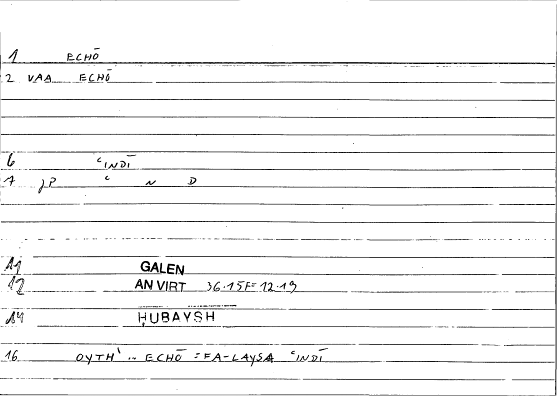 1 ECHŌ
2 VAA ECHŌ
6 ʿINDĪ
7 JP ʿ N D
11 GALEN
12 AN VIRT 36.15F=12.19
14 ḤUBAYSH
16 OYTH' .. ECHŌ = FA-LAYSA ʿINDĪ